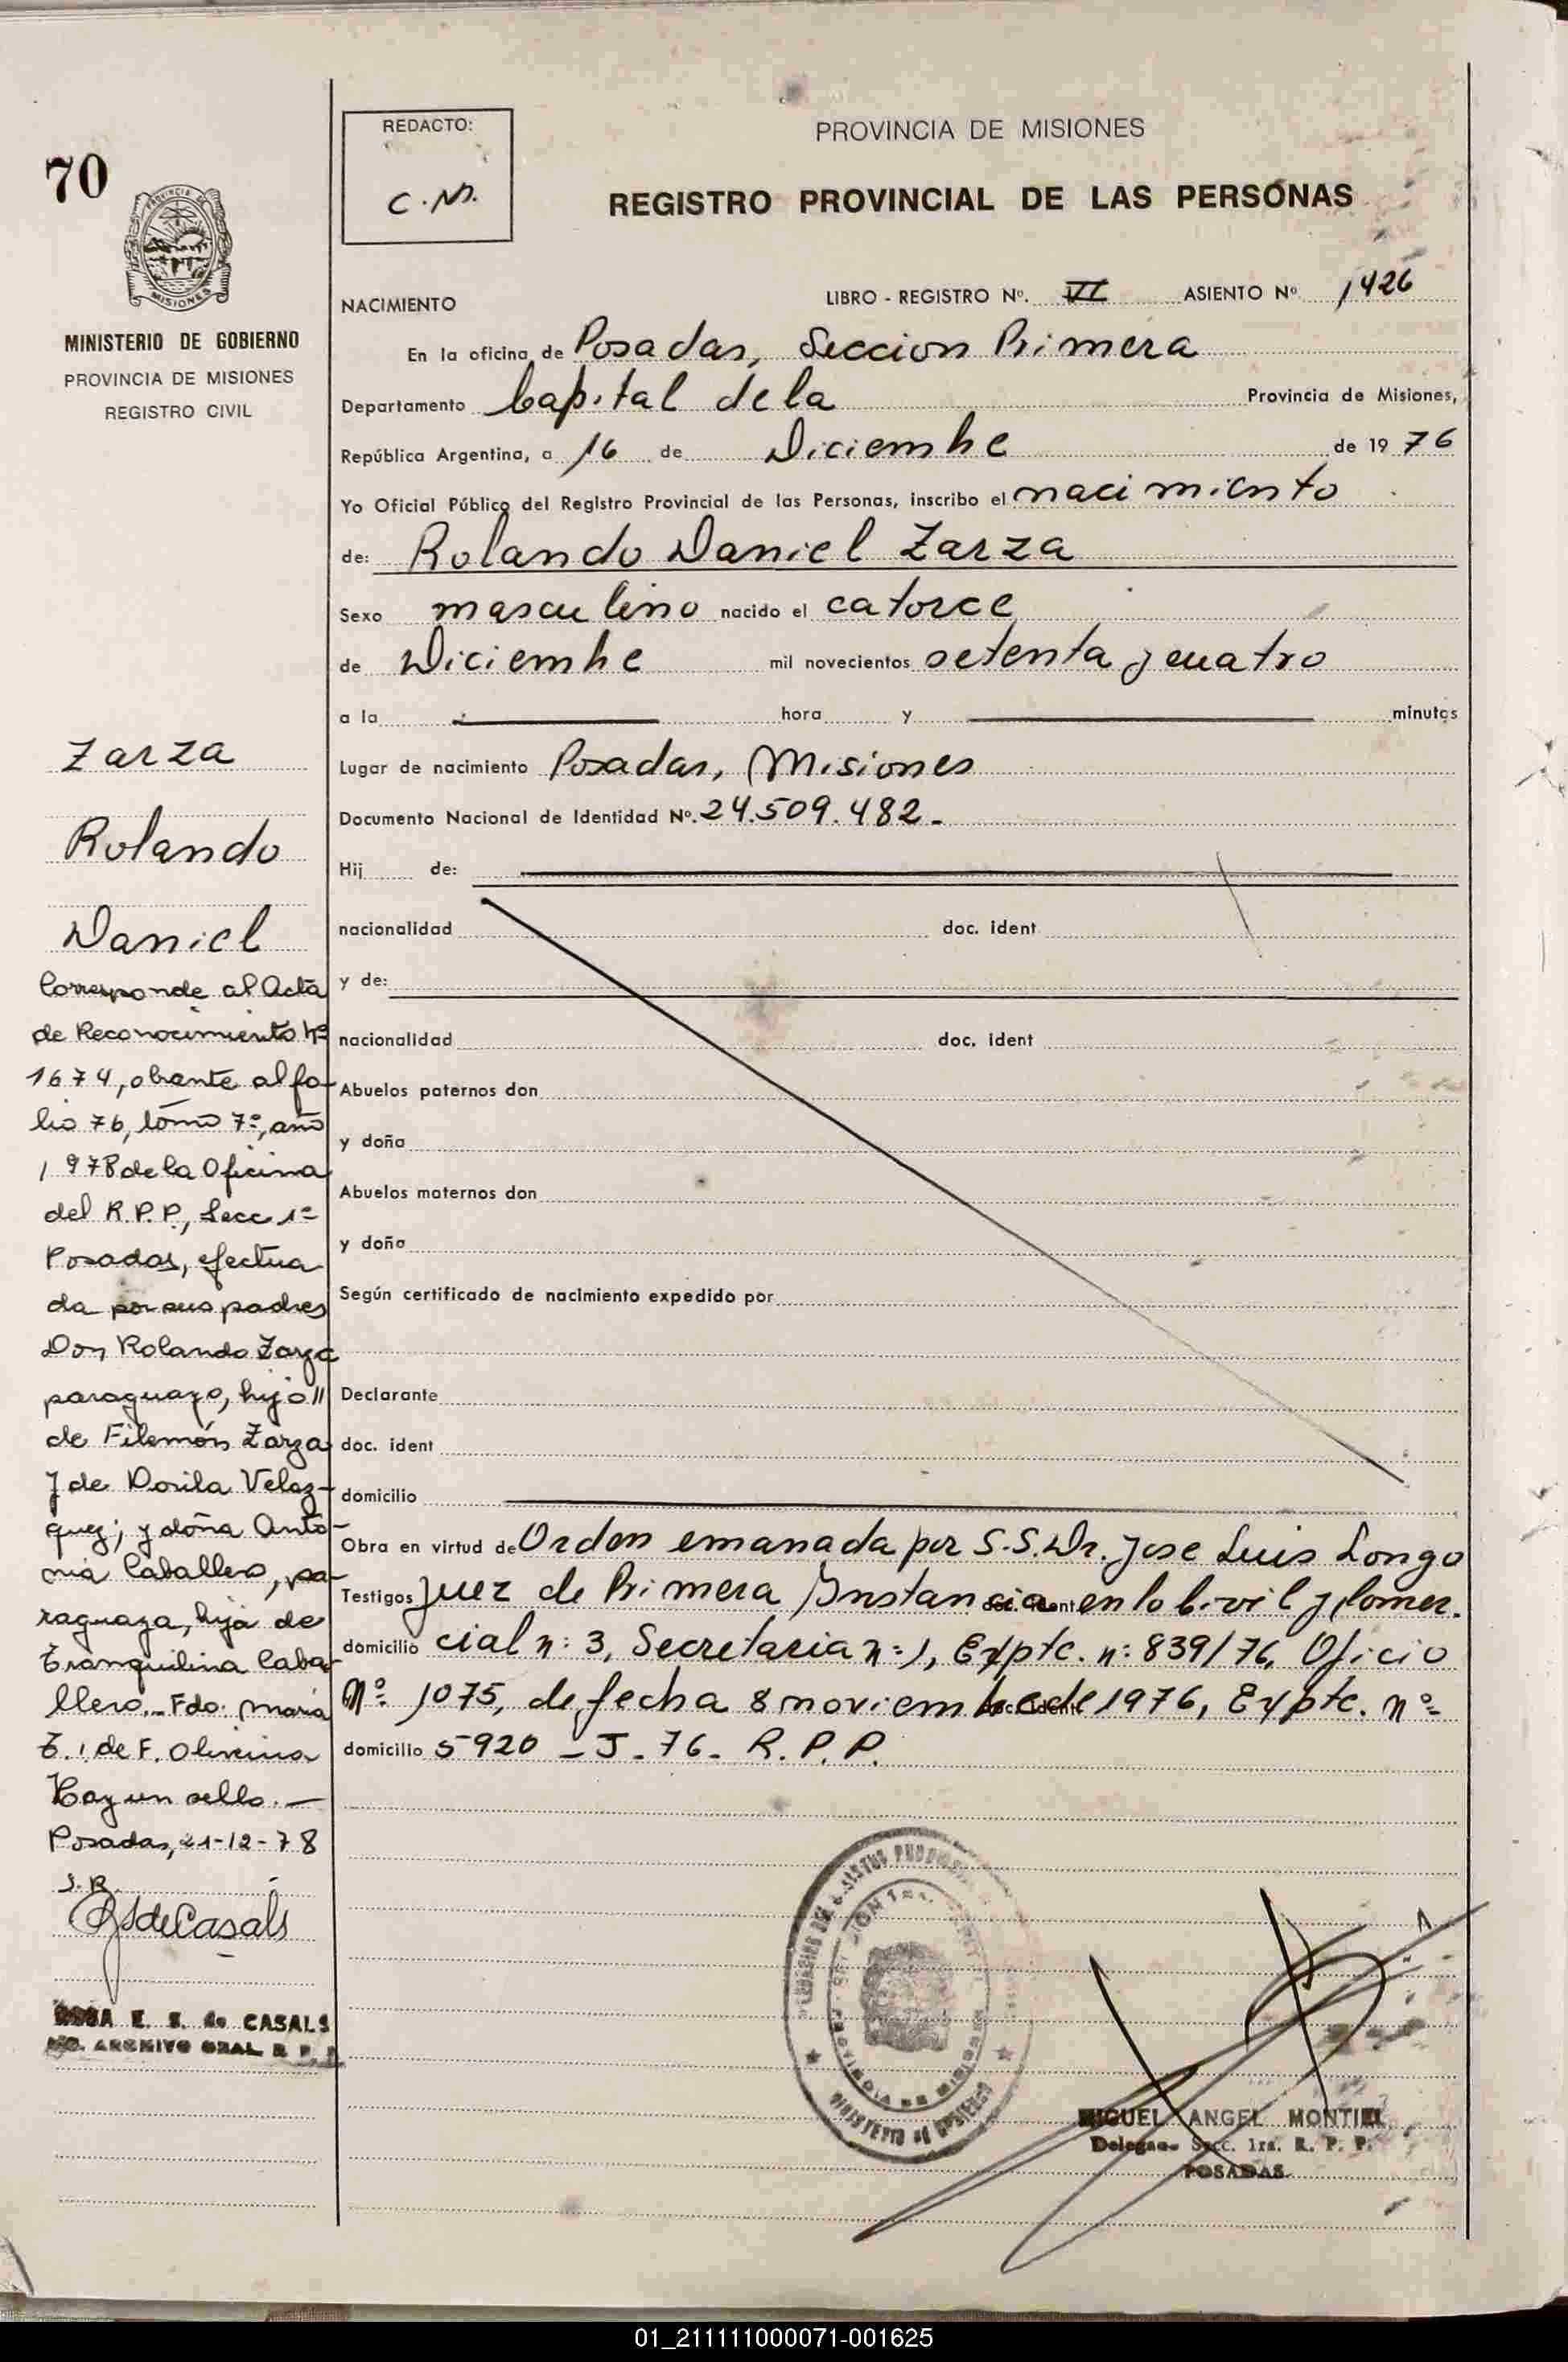 70
PROVINCIA DE
MISIONES
MINISTERIO DE GOBIERNO
PROVINCIA DE MISIONES
REGISTRO CIVIL
REDACTO:
PROVINCIA DE MISIONES
REGISTRO PROVINCIAL DE LAS PERSONAS
NACIMIENTO LIBRO - REGISTRO Nº. VI ASIENTO Nº 1426
En la oficina de Posadas, Seccion Primera
Departamento Capital de la Provincia de Misiones,
República Argentina, a 16 de Diciembre de 1976
Yo Oficial Público del Registro Provincial de las Personas, inscribo el nacimiento
de: Rolando Daniel Zarza
Sexo masculino nacido el catorce
de Diciembre mil novecientos setenta y cuatro
a la hora y minutos
Lugar de nacimiento Posadas, Misiones
Documento Nacional de Identidad Nº. 24.509.482.-
Hij de:
nacionalidad doc. ident
y de:
nacionalidad doc. ident
Abuelos paternos don
y doña
Abuelos maternos don
y doña
Según certificado de nacimiento expedido por
Declarante
doc. ident
domicilio
Obra en virtud de Orden emanada por S.S. Dr. Jose Luis Longo
Testigos Juez de Primera Instancia en lo Civil y Comer.
domicilio cial n: 3, Secretaria n: 1, Expte. n: 839/76, Oficio
Nº 1075, de fecha 8 noviembre de 1976, Expte. nº
domicilio 5920 - J - 76 - R.P.P.
Zarza
Rolando
Daniel
Corresponde al Acta
de Reconocimiento Nº
1674, obrante al fo-
lio 76, tomo 7º, año
1978 de la Oficina
del R.P.P., Secc 1ª
Posadas, efectua
da por sus padres
Don Rolando Zarza
paraguayo, hijo //
de Filemón Zarza
y de Dorila Velaz-
quez; y doña Anto-
nia Caballero, pa-
raguaya, hija de
Tranquilina Caba-
llero.- Fdo: Maria
de F. Oliveira
Hay un sello.-
Posadas, 21-12-78
deCasals
E. S. de CASALS
ARCHIVO GRAL R. P. P.
MINISTERIO DE GOBIERNO
PROVINCIA DE MISIONES
MIGUEL ANGEL MONTIEL
Secc. 1ra. R. P. P.
POSADAS
01_211111000071-001625